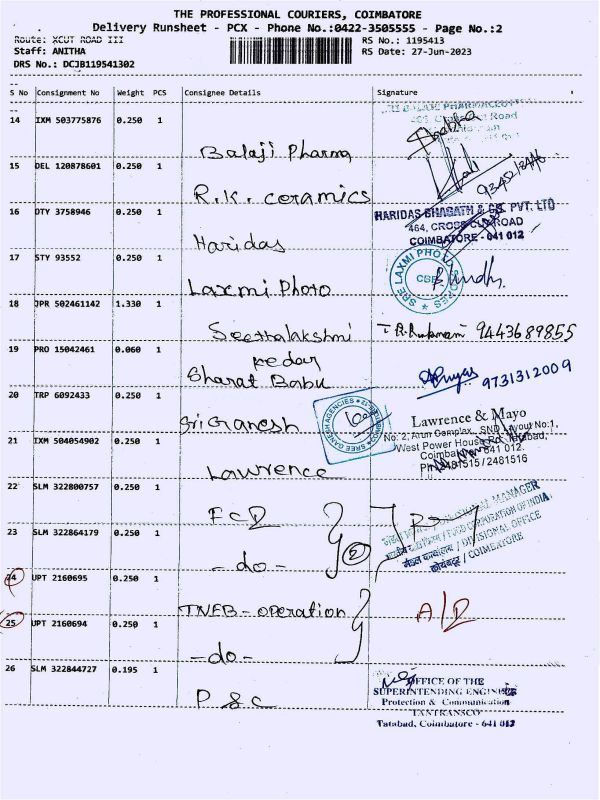 THE PROFESSIONAL COURIERS, COIMBATORE
Delivery Runsheet - PCX - Phone No.:0422-3505555 - Page No.:2
Route: XCUT ROAD III
RS No.: 1195413
Staff: ANITHA
RS Date: 27-Jun-2023
DRS No.: DCJB119541302
S No Consignment No Weight PCS Consignee Details Signature
14 IXM 503775876 0.250 1
Balaji Pharma
15 DEL 120878601 0.250 1
R.K. ceramics
16 DTY 3758946 0.250 1
HARIDAS BHAGATH & CO. PVT. LTD
464, CROSS CUT ROAD
COIMBATORE - 641 012
Haridas
17 STY 93552 0.250 1
SRE LAXMI PHOTO
CBE
Laxmi Photo
18 JPR 502461142 1.330 1
Seethalakshmi
9443689855
19 PRO 15042461 0.060 1
kedar
Bharat Babu
9731312009
20 TRP 6092433 0.250 1
Sri Ganesh
SREE GANESH AGENCIES
Lawrence & Mayo
No: 2, Arun Complex, SND Layout No:1,
West Power House Rd, Tatabad,
Coimbatore 641 012.
Ph: 2481515 / 2481516
21 IXM 504054902 0.250 1
Lawrence
22 SLM 322800757 0.250 1
FCI
23 SLM 322864179 0.250 1
-do-
2
MANAGER
FOOD CORPORATION OF INDIA
मंडल कार्यालय / DIVISIONAL OFFICE
कोयंबटूर / COIMBATORE
24 UPT 2160695 0.250 1
TNEB - operation
A/D
25 UPT 2160694 0.250 1
-do-
26 SLM 322844727 0.195 1
P & C
OFFICE OF THE
SUPERINTENDING ENGINEER
Protection & Communication
TANTRANSCO
Tatabad, Coimbatore - 641 012